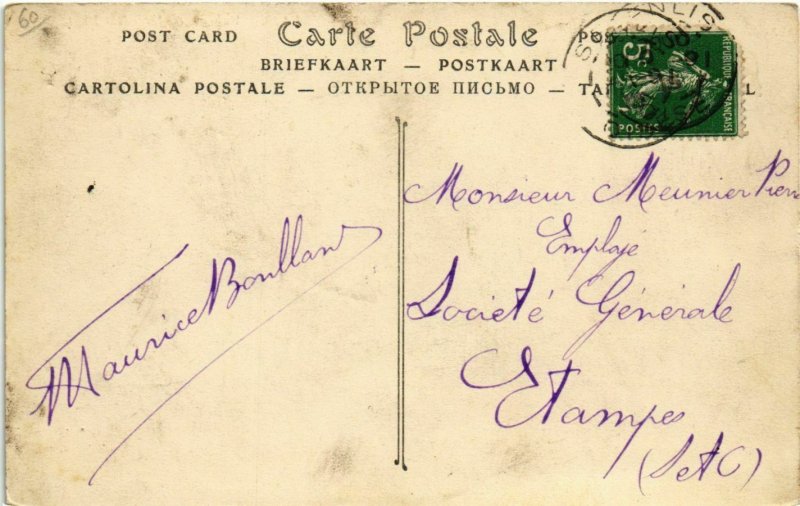 60
POST CARD Carte Postale
BRIEFKAART — POSTKAART
CARTOLINA POSTALE — ОТКРЫТОЕ ПИСЬМО —
5c
RÉPUBLIQUE FRANÇAISE
POSTES
Monsieur Meunier Pierre
Employé
Société Générale
Etampes
(S et O)
Maurice Boulland